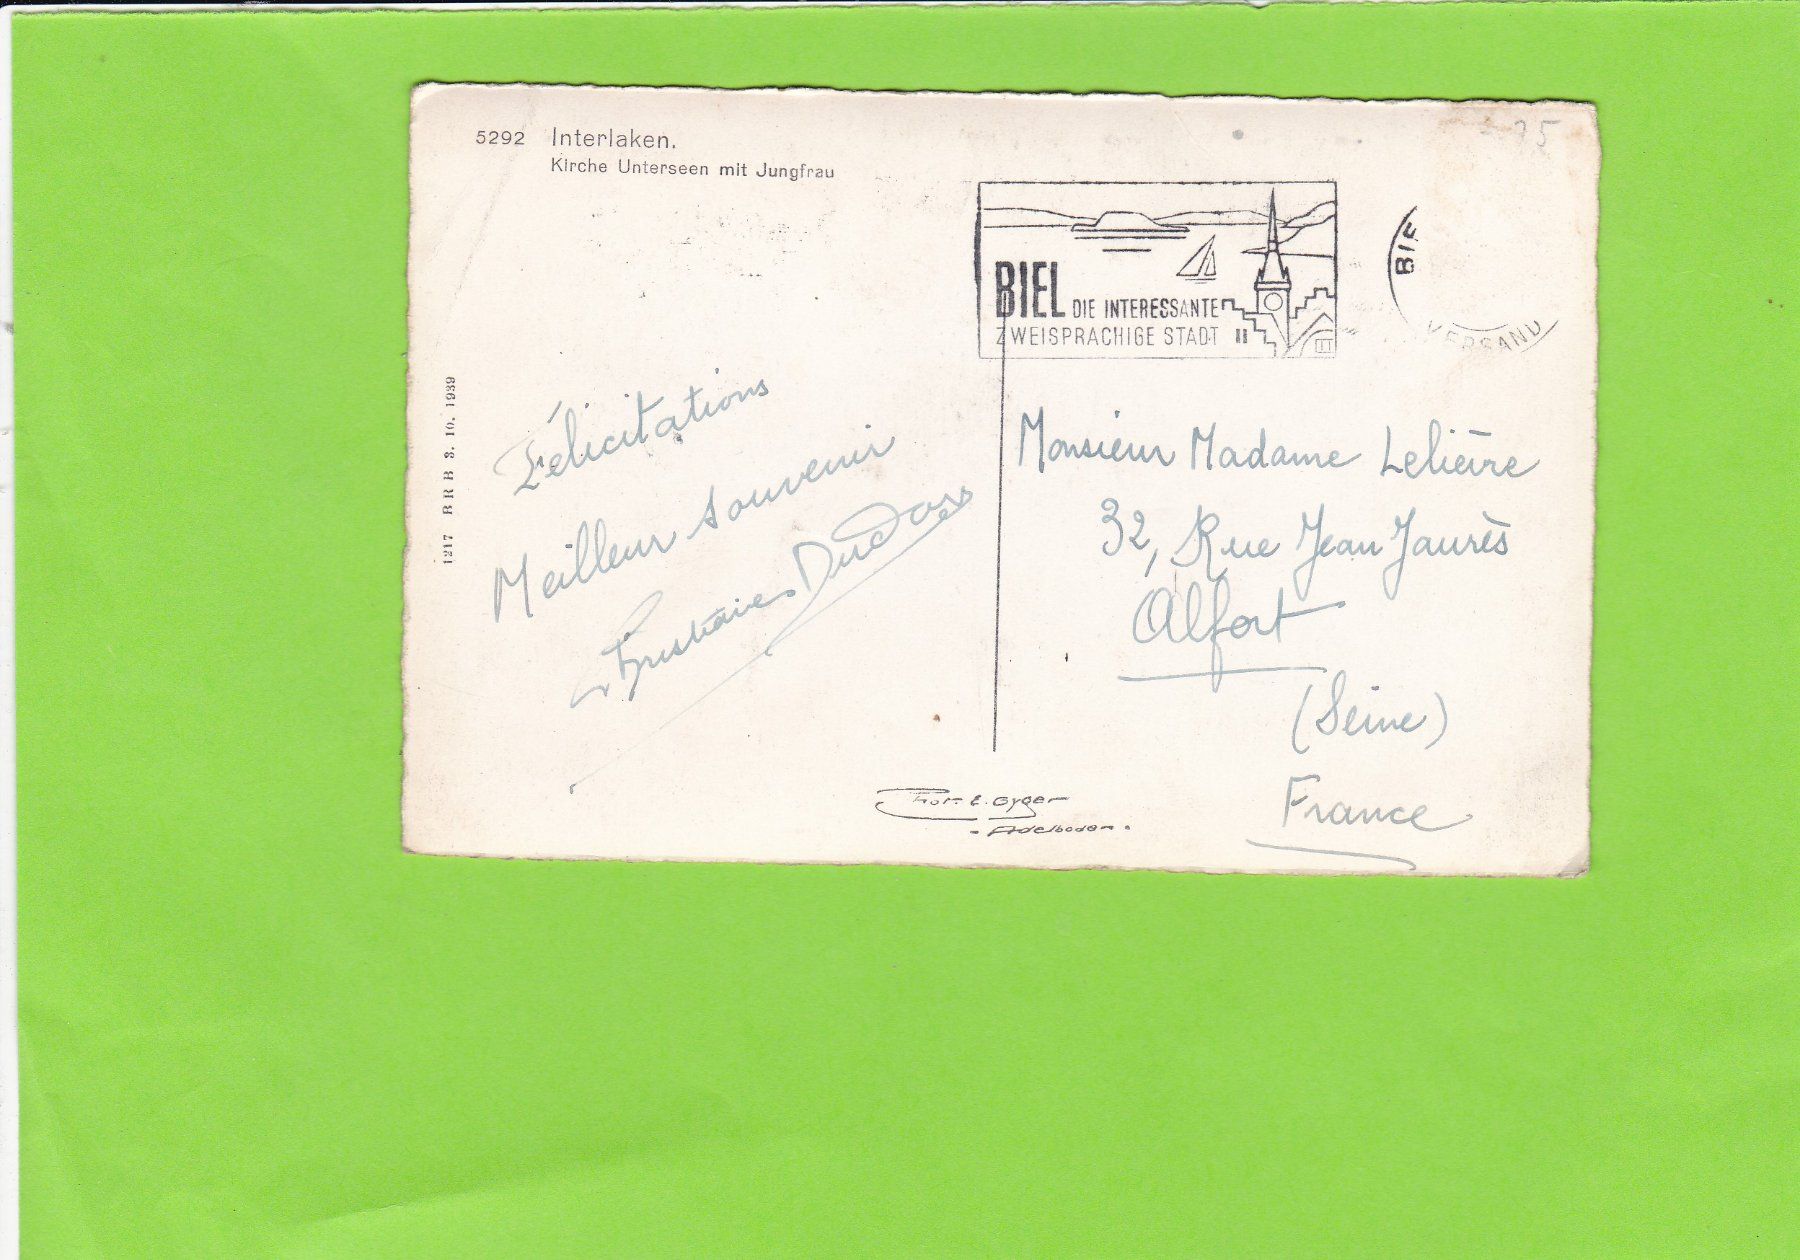 5292 Interlaken.
Kirche Unterseen mit Jungfrau
BIEL DIE INTERESSANTE
ZWEISPRACHIGE STADT
BIE
VERSAND
1217 BRB 3. 10. 1939
Félicitations
Meilleur souvenir
Monsieur Madame Lelièvre
32, Rue Jean Jaurès
Alfort
(Seine)
France
Phot. E. Gyger
- Adelboden -